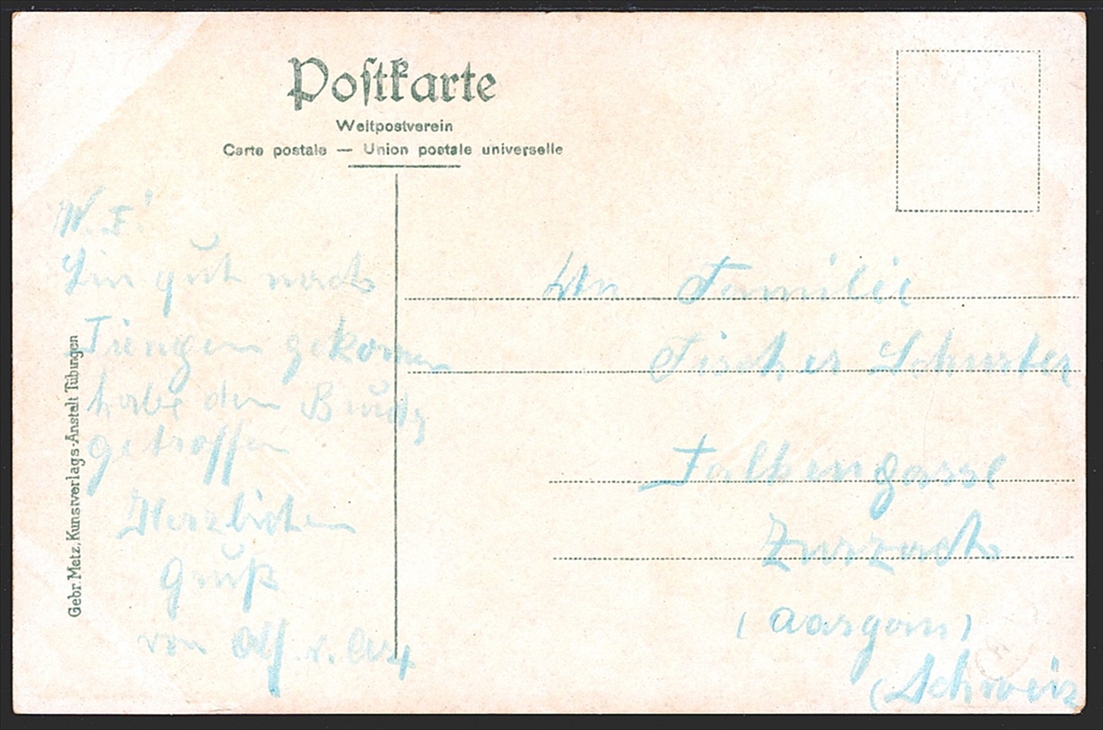 Postkarte
Weltpostverein
Carte postale — Union postale universelle
W. F!
Bin gut nach
Tiengen gekommen
habe den
getroffen
Herzlichen
Gruß
von Alf
An Familie
Fischer Schurter
Falkengasse
Zurzach
(Aargau)
(Schweiz
Gebr. Metz, Kunstverlags-Anstalt Tübingen